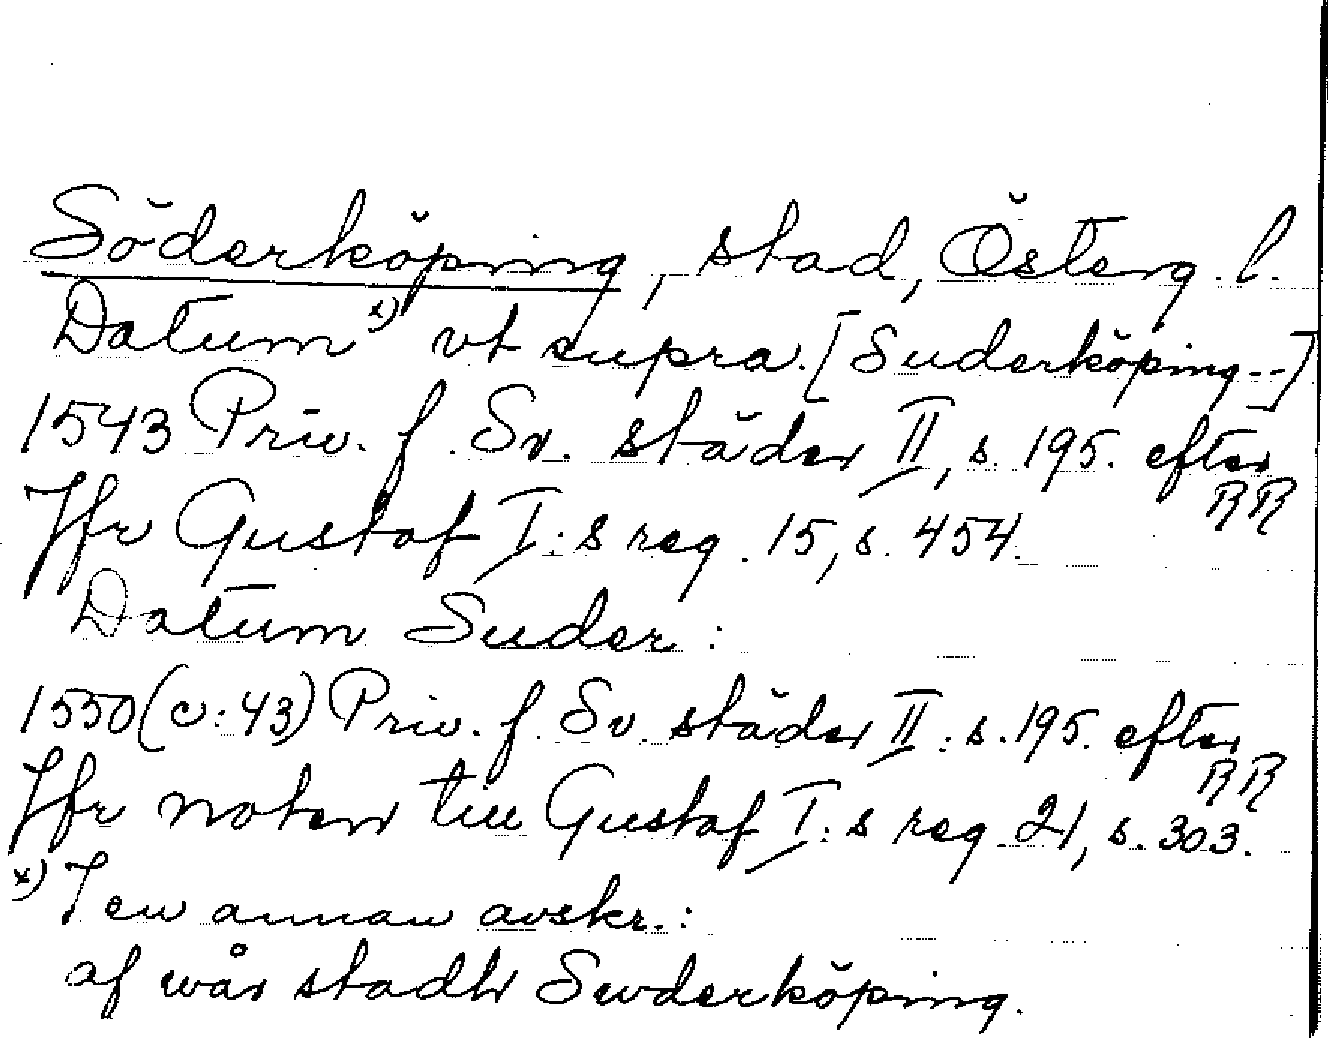 Söderköping, stad, Österg. l.
Datum x) vt supra. [Suderköping--]
1543 Priv. f. Sv. städer II, s. 195. efter RR
Jfr Gustaf I:s reg. 15, s. 454.
Datum Suder:
1550 (c: 43) Priv. f. Sv. städer II: s. 195. efter RR
Jfr noten till Gustaf I:s reg. 21, s. 303.
x) I en annan avskr.:
af wår stadh Swderköping.